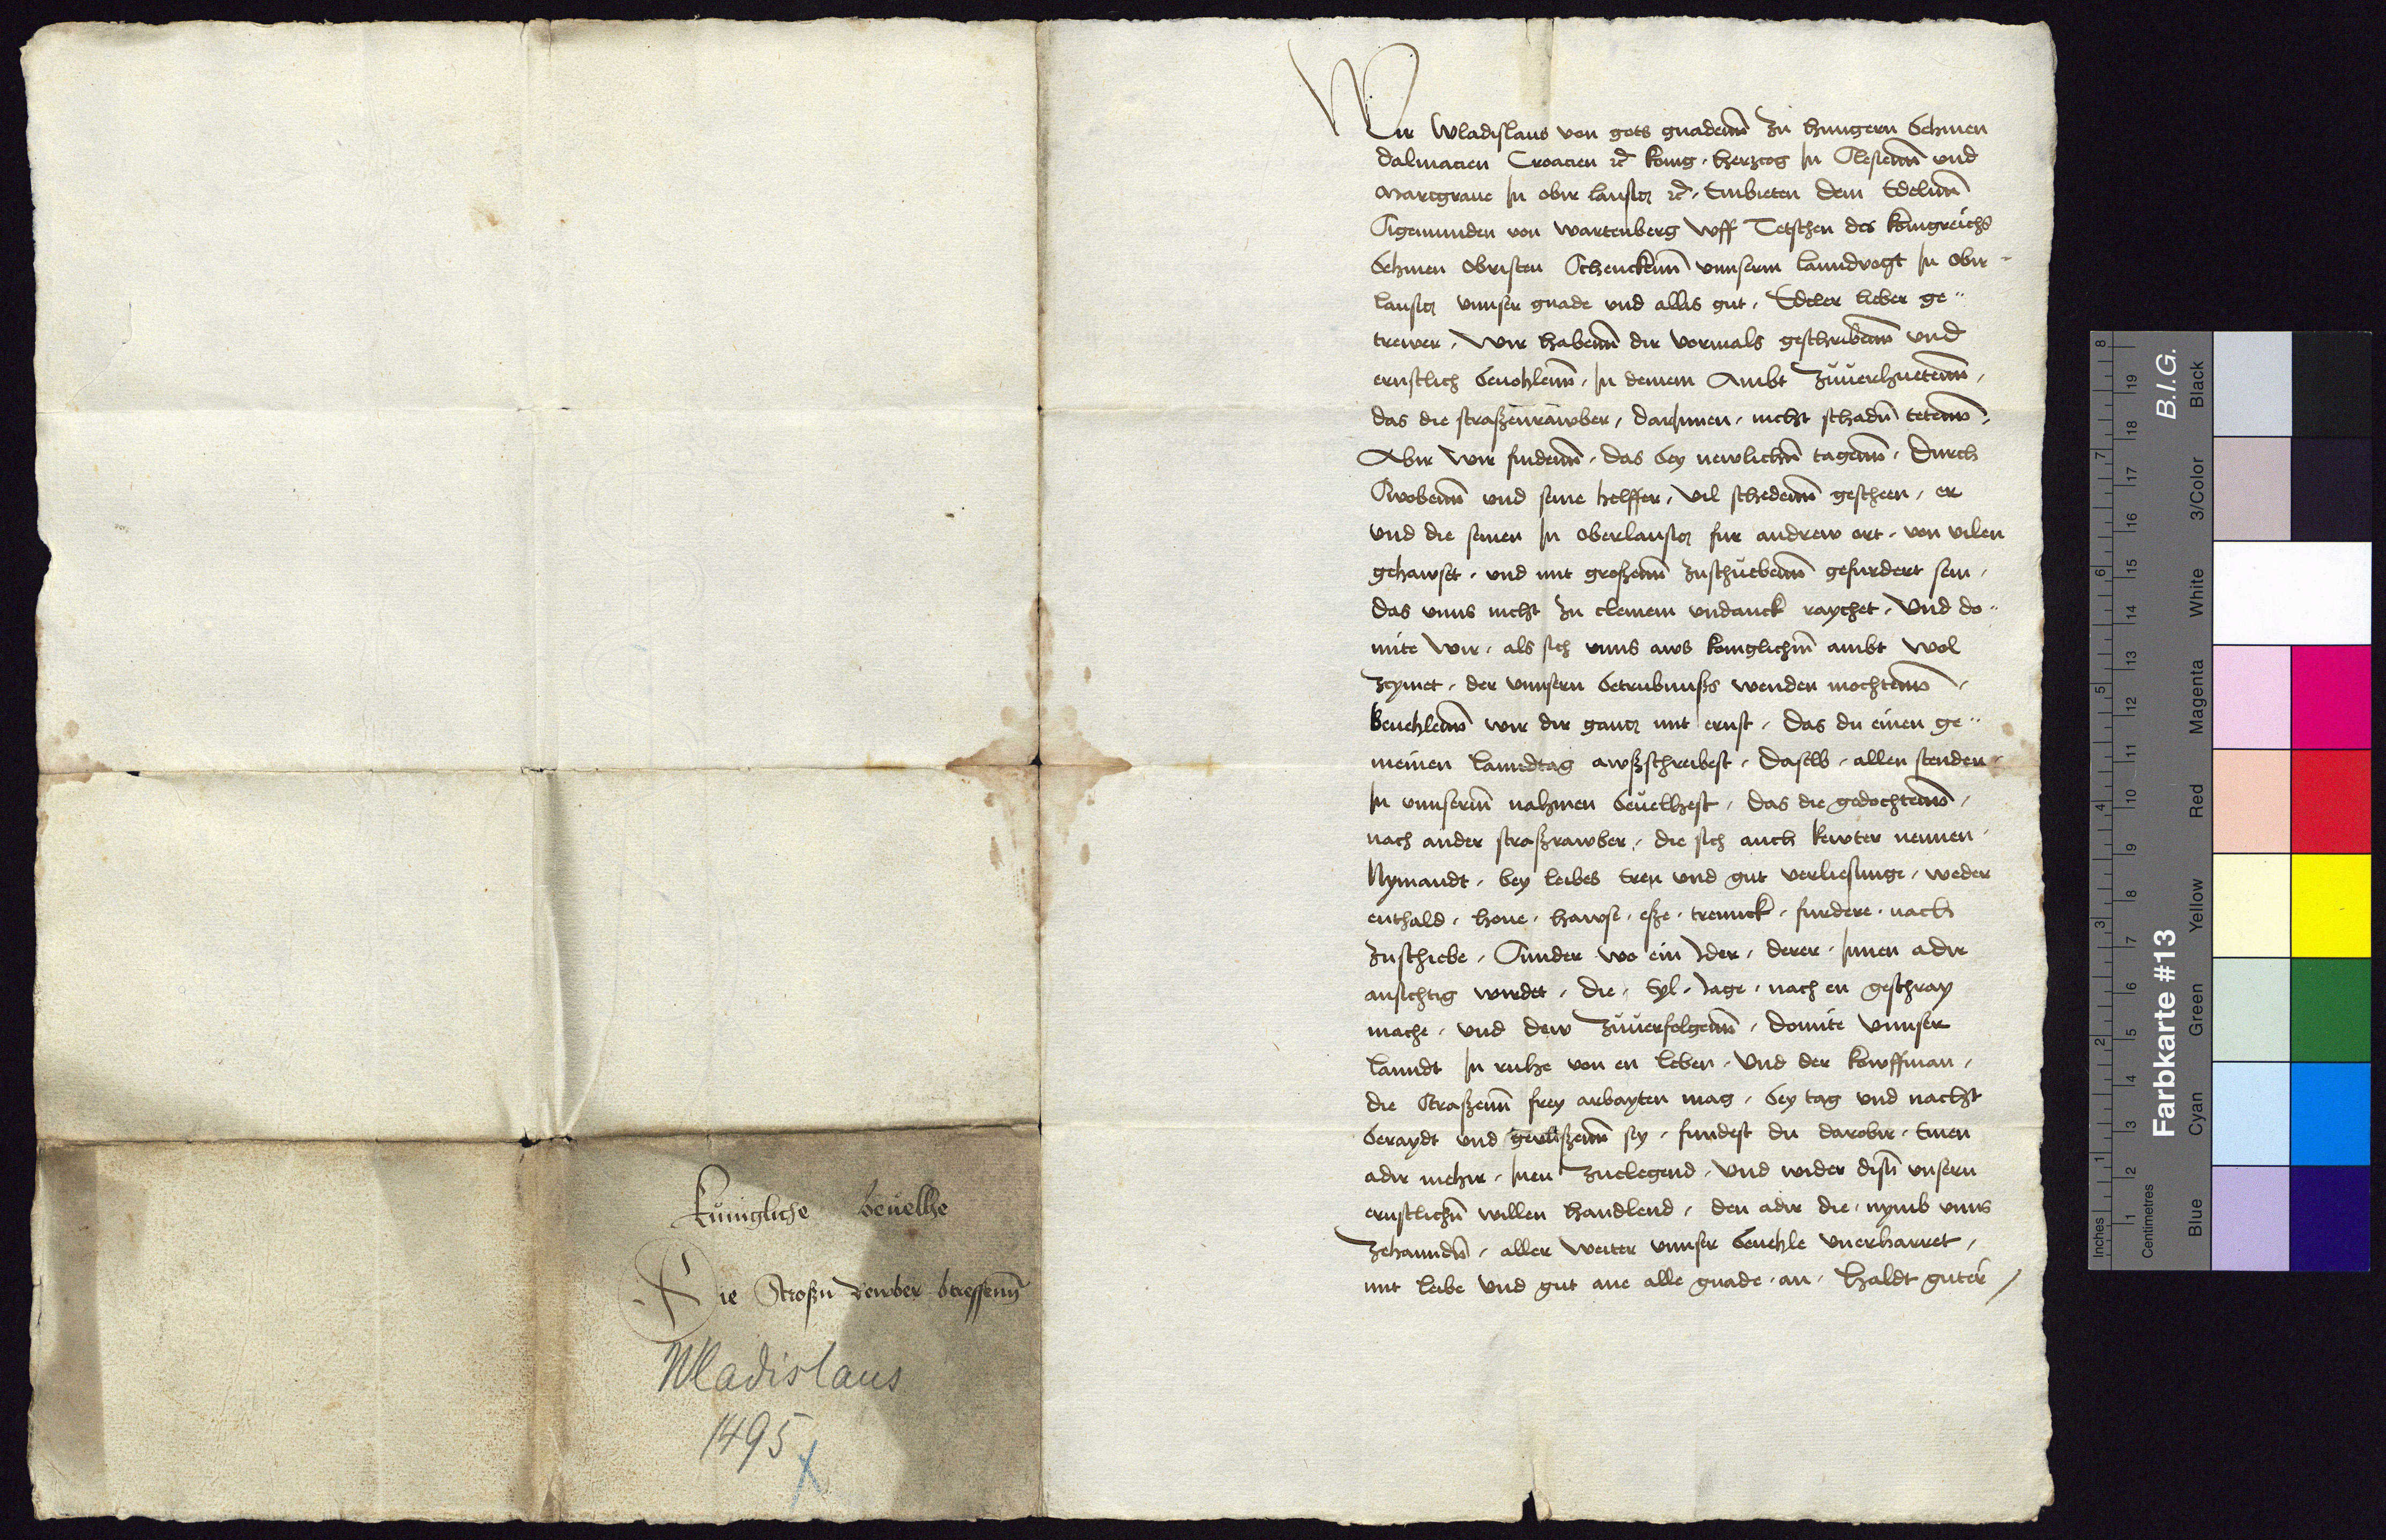 Kunigliche beuelhe
Die Stroßn Rewber btreffennd
Wladislaus
1495
X
Wir Wladislaus von gots gnadenn zu hungern Behmen
dalmacien Croacien ꝛc konig, herzog In Slesienn und
Marcgraue In obir lausicz ꝛc, Embieten dem Edelnn
Sigemunden von wartenberg vff Tetschen des konigreichs
Behmen Obristen Schenckenn vnnserm lanndvogt In obir-
lausicz vnnser gnade vnd alles gut, Edeler lieber ge-
trewer, Wir habenn dir vormals geschribenn vnd
ernstlich beuohlenn, In deinem Ambt zuuerhuetenn,
das die straßenrawber, darInnen, nicht schadn tetenn,
Abir wir findenn, das bey newlichnn tagenn, durch
Swobenn vnd seine helffer, vil schedenn gescheen, er
vnd die seinen In Oberlausicz fur andrew ort, von vilen
gehawset, vnd mit großenn zuschuebenn gefurdert sein,
das vnns nicht zu cleinem vndanck raychet, Vnd do-
mite wir, als sich vnns aws koniglichm ambt wol
zcymet, der vnnsern betrubnußs wenden mochtenn,
beuehlenn wir dir gancz mit ernst, das du einen ge-
meinen lanndtag awßschreibest, daselb, allen stenden,
In vnnserm nahmen beuelhest, das die gedochtenn,
nach ander straßrawber, die sich auch Rewter nennen,
Nymandt, bey leibes Eren vnd gut verliesunge, weder
enthald, houe, hawse, eße, trennck, furdere, nach
zuschiebe, Sunder wo ein Jder, derer, Innen adir
ansichtig wirdet, die, Eyl, Jage, nach en geschray
mache, vnd dew zuuerfolgenn, domite vnnser
lanndt In ruhe von en leben, Vnd der kowffman,
die Straßenn frey arbayten mag, bey tag vnd nacht
beraydt vnd geulißenn sey, fundest du darobir, Einen
adir mehir, Inen zuelegend, Vnd wider disn vnsern
ernstlichn willen handlend, den adir die, nymb vnns
zehanndn, aller weiter vnnser beuehle vnerharret,
mit leibe vnd gut ane alle gnade, an, haldt guter
Farbkarte #13
B.I.G.
Inches
1
2
3
4
5
6
7
8
Centimetres
1
2
3
4
5
6
7
8
9
10
11
12
13
14
15
16
17
18
19
Blue
Cyan
Green
Yellow
Red
Magenta
White
3/Color
Black